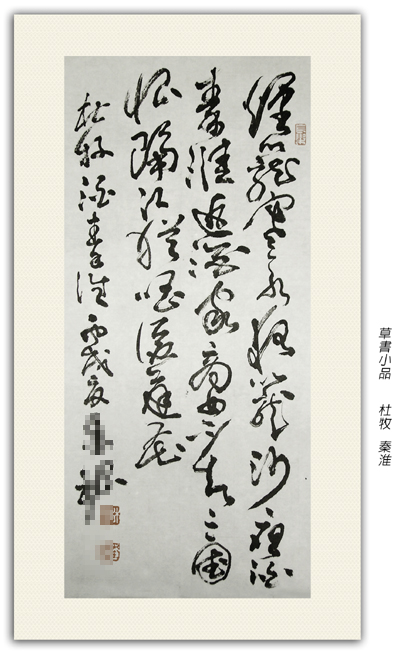 煙籠寒水月籠沙夜泊
秦淮近酒家商女不知亡國
恨隔江猶唱後庭花
杜牧泊秦淮丙戌夏
草書小品 杜牧 秦淮